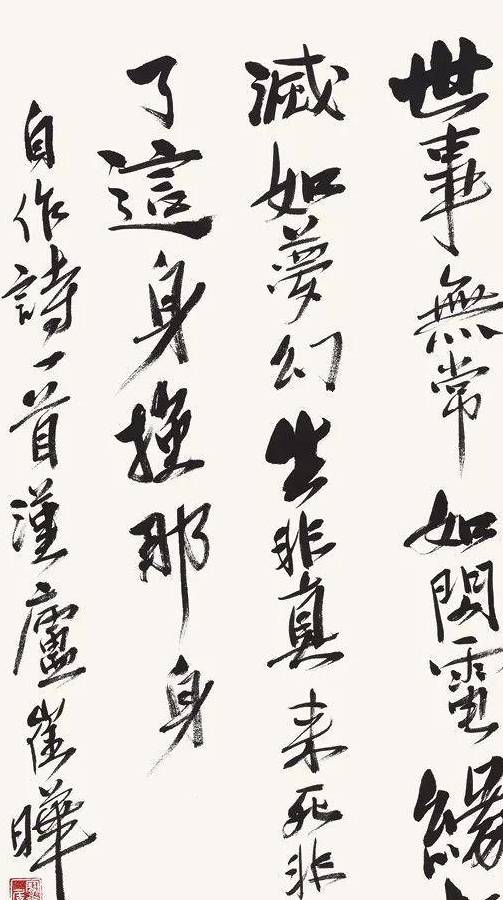 世事無常如閃電緣
滅如夢幻生非真来死非
了這身換那身
自作詩一首漢廬崔曄